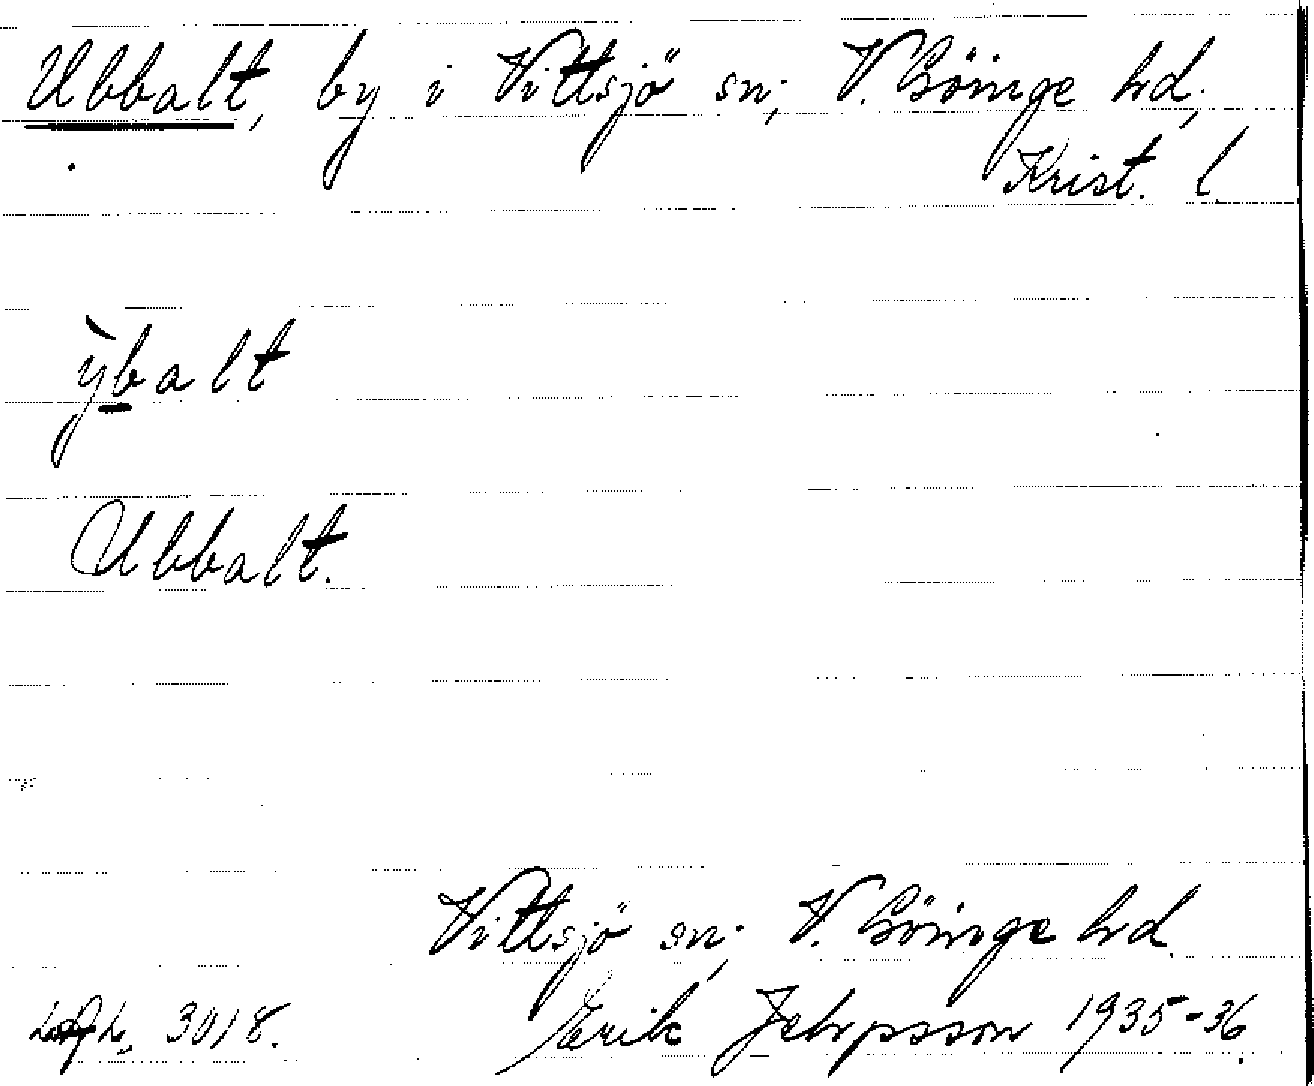 Ubbalt, by i Vittsjö sn; V. Göinge hd,
Krist. l.
ỳbalt
Ubbalt.
Vittsjö sn; V. Göinge hd.
3018. Erik Jehrpsson 1935-36.